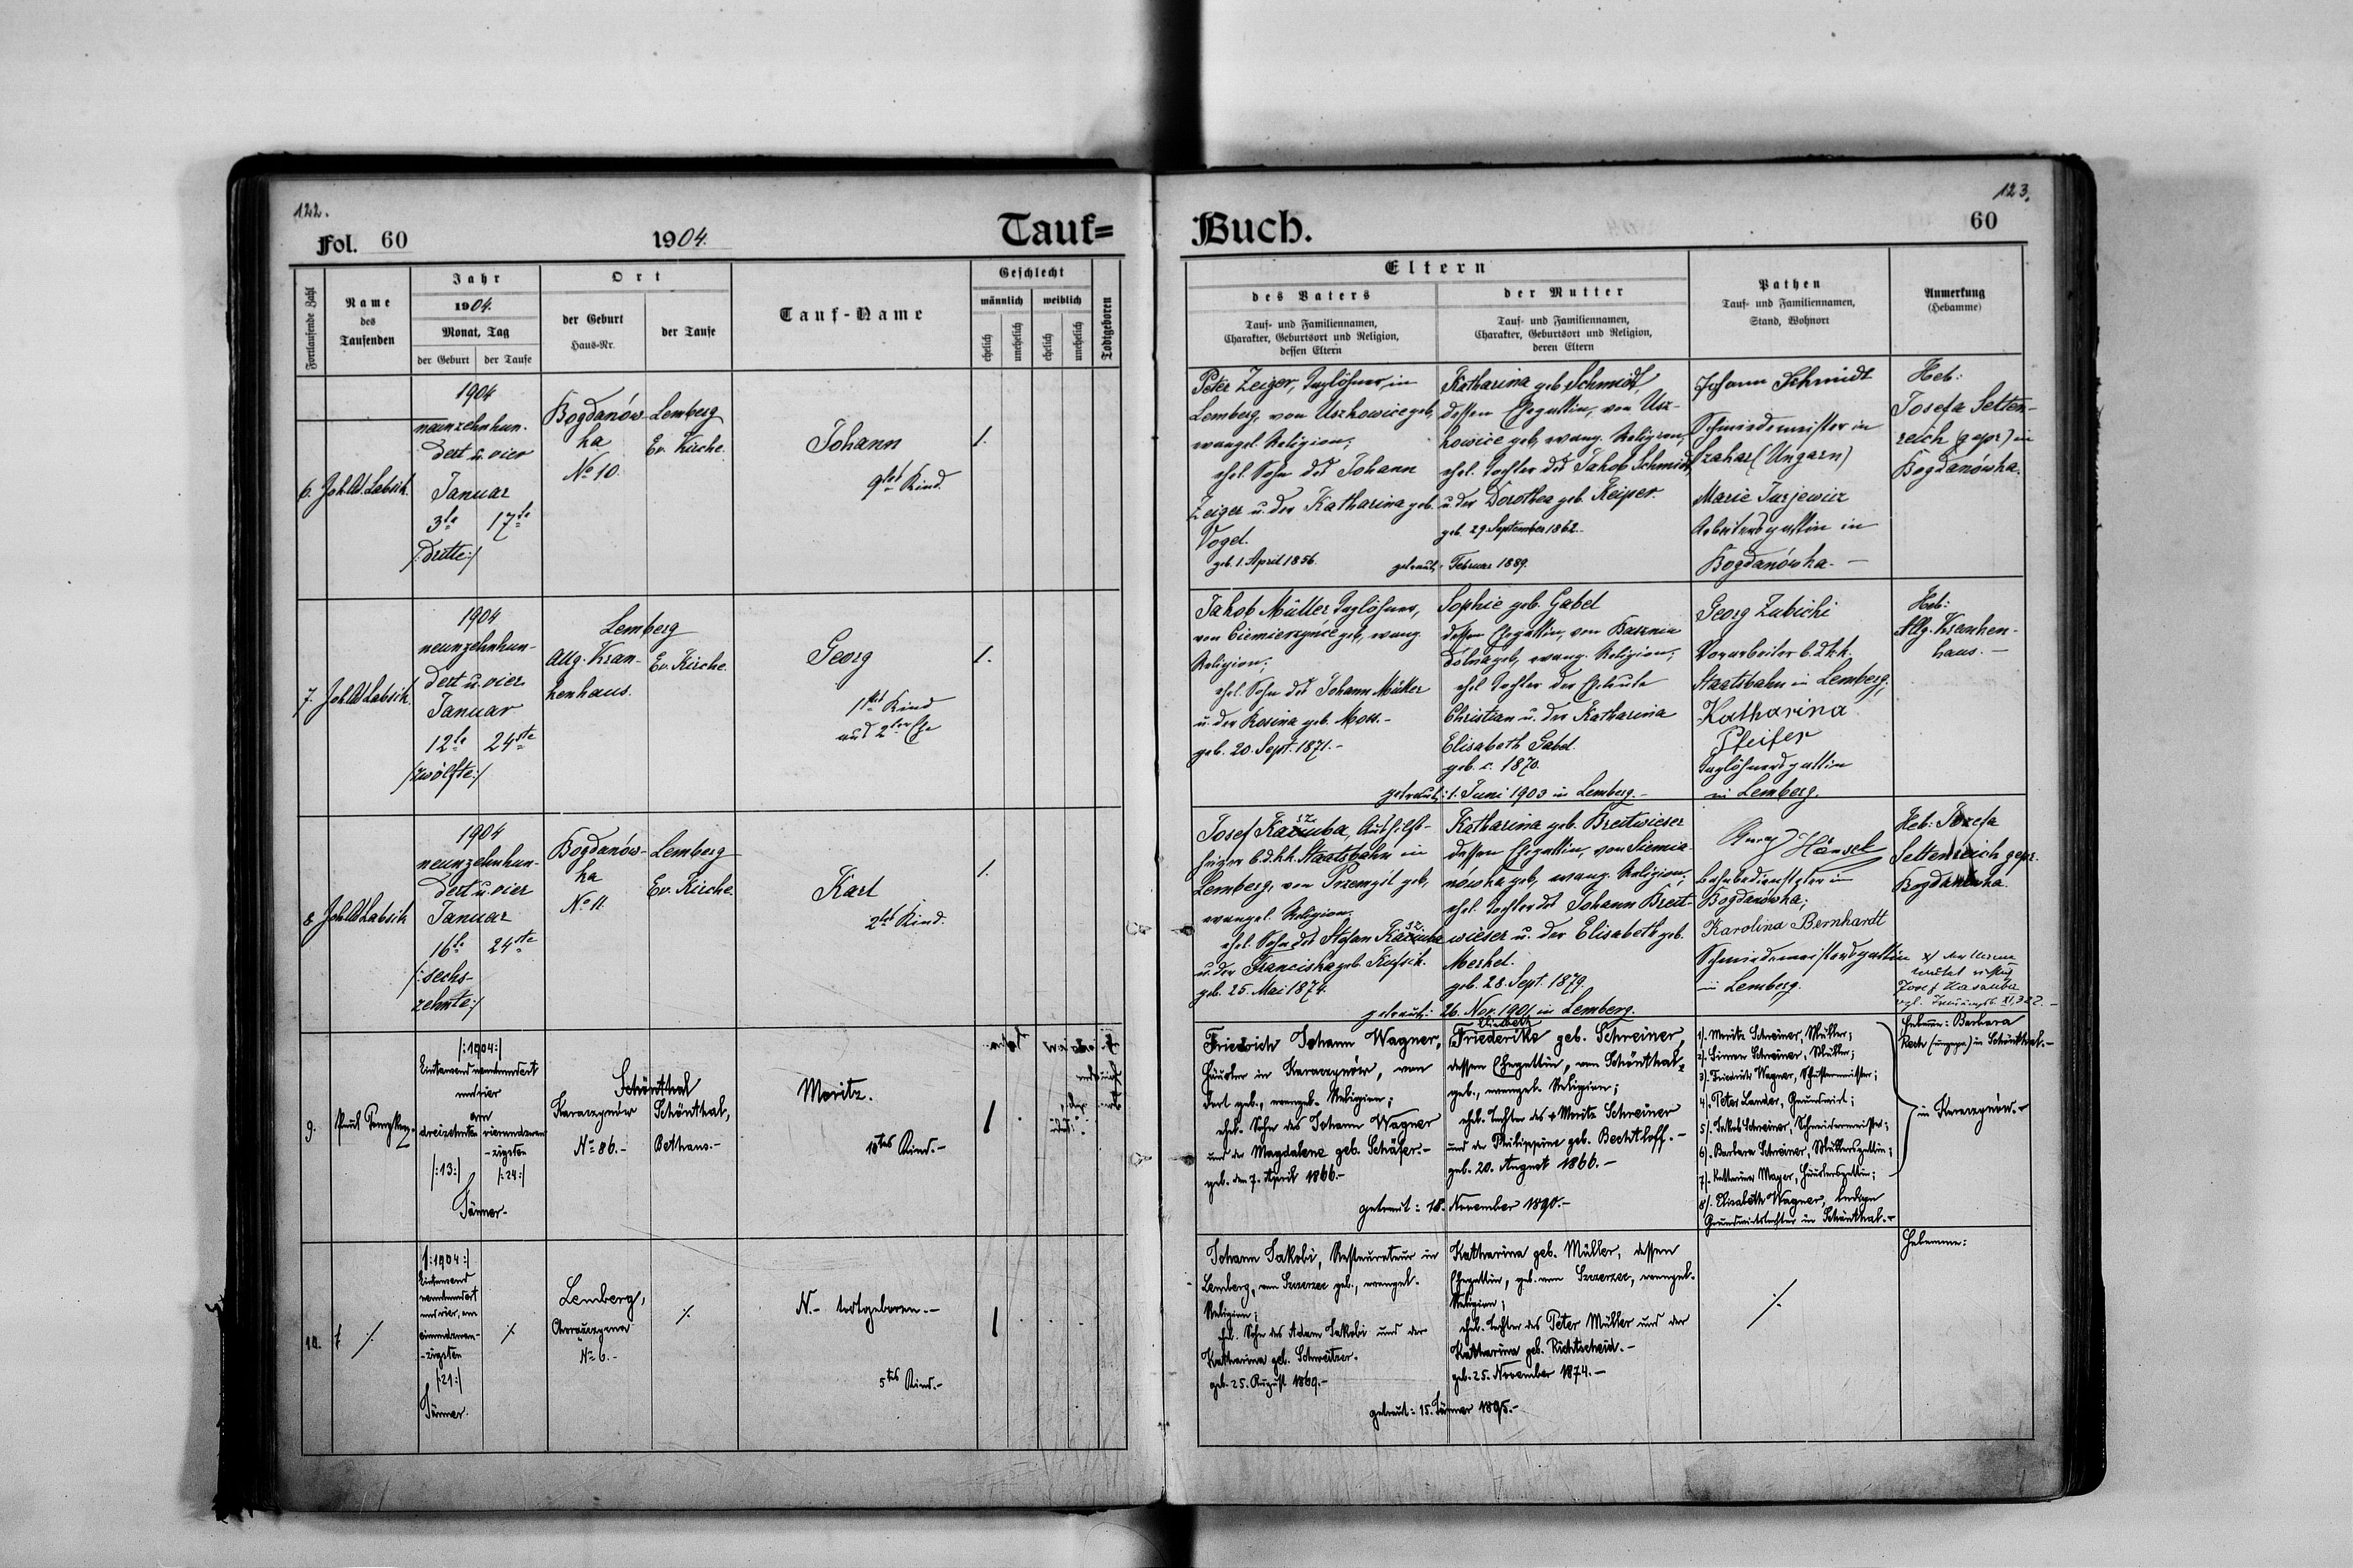 122.
Fol. 60
1904.
Tauf=
Fortlaufende Zahl
Name
des
Taufenden
Jahr
1904.
Monat, Tag
der Geburt
der Taufe
Ort
der Geburt
Haus-Nr.
der Taufe
Tauf-Name
Geschlecht
männlich
weiblich
ehelich
unehelich
ehelich
unehelich
Todtgeboren
6.
Joh. Labsik.
1904
neunzehnhun-
dert u. vier
Januar
3te 17te
/:dritte:/
Bogdanów-
ka
No 10.
Lemberg
Ev. Kirche.
Johann
9tes Kind.
1.
7.
Joh. Labsik.
1904
neunzehnhun-
dert u. vier
Januar
12te 24ste
/zwölfte:/
Lemberg
Allg. Kran-
kenhaus.
Ev. Kirche.
Georg
1stes Kind
aus 2ter Ehe
1.
8
Joh. Labsik
1904
neunzehnhun-
dert u. vier
Januar
16te 24ste
/:sechs-
zehnte:/
Bogdanów-
ka
No 11.
Lemberg
Ev. Kirche.
Karl
2tes Kind.
1.
9.
/:1904:/
Eintausend neunhundert
und vier
am
dreizehnten
vierundzwan-
-zigsten
/:13:/
/:24:/
Jänner.-
Schönthal
Karaczynów
No 86.-
Schönthal,
Bethaus.-
Moritz.
10tes Kind.-
1
10.
†
/:1904:/
Eintausend
neunhundert
und vier, am
einundzwan-
-zigsten
/:21:/
Jänner.
Lemberg,
Chorążczyzna
No 6.-
N.- todtgeboren.-
5tes Kind.-
1
123.
Buch.
60
Eltern
des Vaters
Tauf- und Familiennamen,
Charakter, Geburtsort und Religion,
dessen Eltern
der Mutter
Tauf- und Familiennamen,
Charakter, Geburtsort und Religion,
deren Eltern
Pathen
Tauf- und Familiennamen,
Stand, Wohnort
Anmerkung
(Hebamme)
Peter Zeiger, Taglöhner, in
Lemberg, von Uszkowice geb,
evangel. Religion;
ehel. Sohn des Johann
Zeiger u. der Katharina geb.
Vogel.
geb. 1. April 1856.
Katharina geb. Schmidt,
dessen Ehegattin, von Usz-
kowice geb, evang. Religion;
ehel. Tochter des Jakob Schmidt,
u. der Dorothea geb. Keiper.
geb. 29. September 1862.
getraut: Februar 1889.
Johann Schmidt
Schmiedemeister in
Szakas (Ungarn)
Marie Jurjewicz
Arbeitersgattin in
Bogdanówka. -
Heb:
Josefa Selten-
reich (gepr) in
Bogdanówka.
Jakob Müller Taglöhner,
von Ciemierzyńce geb, evang.
Religion;
ehel. Sohn des Johann Müller
u. der Rosina geb. Moss.-
geb. 20. Sept. 1871.-
Sophie geb. Gabel
dessen Ehegattin, von Basznia
dolna geb, evang. Religion;
ehel Tochter der Eheleute
Christian u. der Katharina
Elisabeth Gabel.
geb. c. 1870.
getraut: 1. Juni 1903 in Lemberg.-
Georg Zubicki
Vorarbeiter b. d. k.k.
Staatsbahn in Lemberg;
Katharina
Pfeifer
Taglöhnersgattin
in Lemberg.
Heb:
Allg. Kranken-
haus.-
Josef Kazuba, Aushilfs-
heizer b. d. k.k. Staatsbahn in
Lemberg, von Przemysl geb,
evangel. Religion.
ehel. Sohn des Stefan Kazuba
u. der Franciska geb. Kufsik.
geb. 25. Mai 1874.
Katharina geb. Breitwieser
dessen Ehegattin, von Siemia-
nówka geb, evang. Religion;
ehel. Tochter des Johann Breit-
wieser u. der Elisabeth geb.
Merkel.
geb. 28. Sept. 1879.
getraut: 26. Nov. 1901 in Lemberg.
Georg Hänsel
Bahnbediensteter in
Bogdanówka;
Karolina Bernhardt
Schmiedemeistersgattin
in Lemberg.
Heb: Josefa
Seltenreich gepr.
Bogdanówka.
Josef Kaszuba
Friedrich Johann Wagner,
Häusler in Karaczynów, von
dort geb., evangel. Religion;
ehel. Sohn des Johann Wagner
und der Magdalena geb. Schäfer.-
geb. den 7. April 1866.-
Elisabeth
Friederike geb. Schreiner,
dessen Ehegattin, von Schönthal
geb., evangel. Religion;
ehel. Tochter des † Moritz Schreiner
und der Philippine geb. Bechtloff.-
geb. 20. August 1866.-
getraut: 18. November 1890.-
1). Moritz Schreiner, Müller;
2). Simon Schreiner, Müller;
3). Friedrich Wagner, Schustermeister;
4). Peter Lander, Grundwirt;
5). Jakob Schreiner, Schneidermeister;
6). Barbara Schreiner, Müllersgattin;
7). Katharina Mayer, Häuslersgattin;
8). Elisabeth Wagner, ledige
Grundwirtstochter in Schönthal.-
in Karaczynów.-
Hebamme: Barbara
Rech (ungepr.) in Schönthal.-
Johann Jakobi, Restaurateur in
Lemberg, von Szczerzec geb., evangel.
Religion;
ehel. Sohn des Adam Jakobi und der
Katharina geb. Schweitzer.
geb. 25. August 1869.-
Katharina geb. Müller, dessen
Ehegattin, geb. von Szczerzec, evangel.
Religion;
ehel. Tochter des Peter Müller und der
Katharina geb. Richtscheid.-
geb. 25. November 1874.-
getraut: 15. Jänner 1895.-
Hebamme: